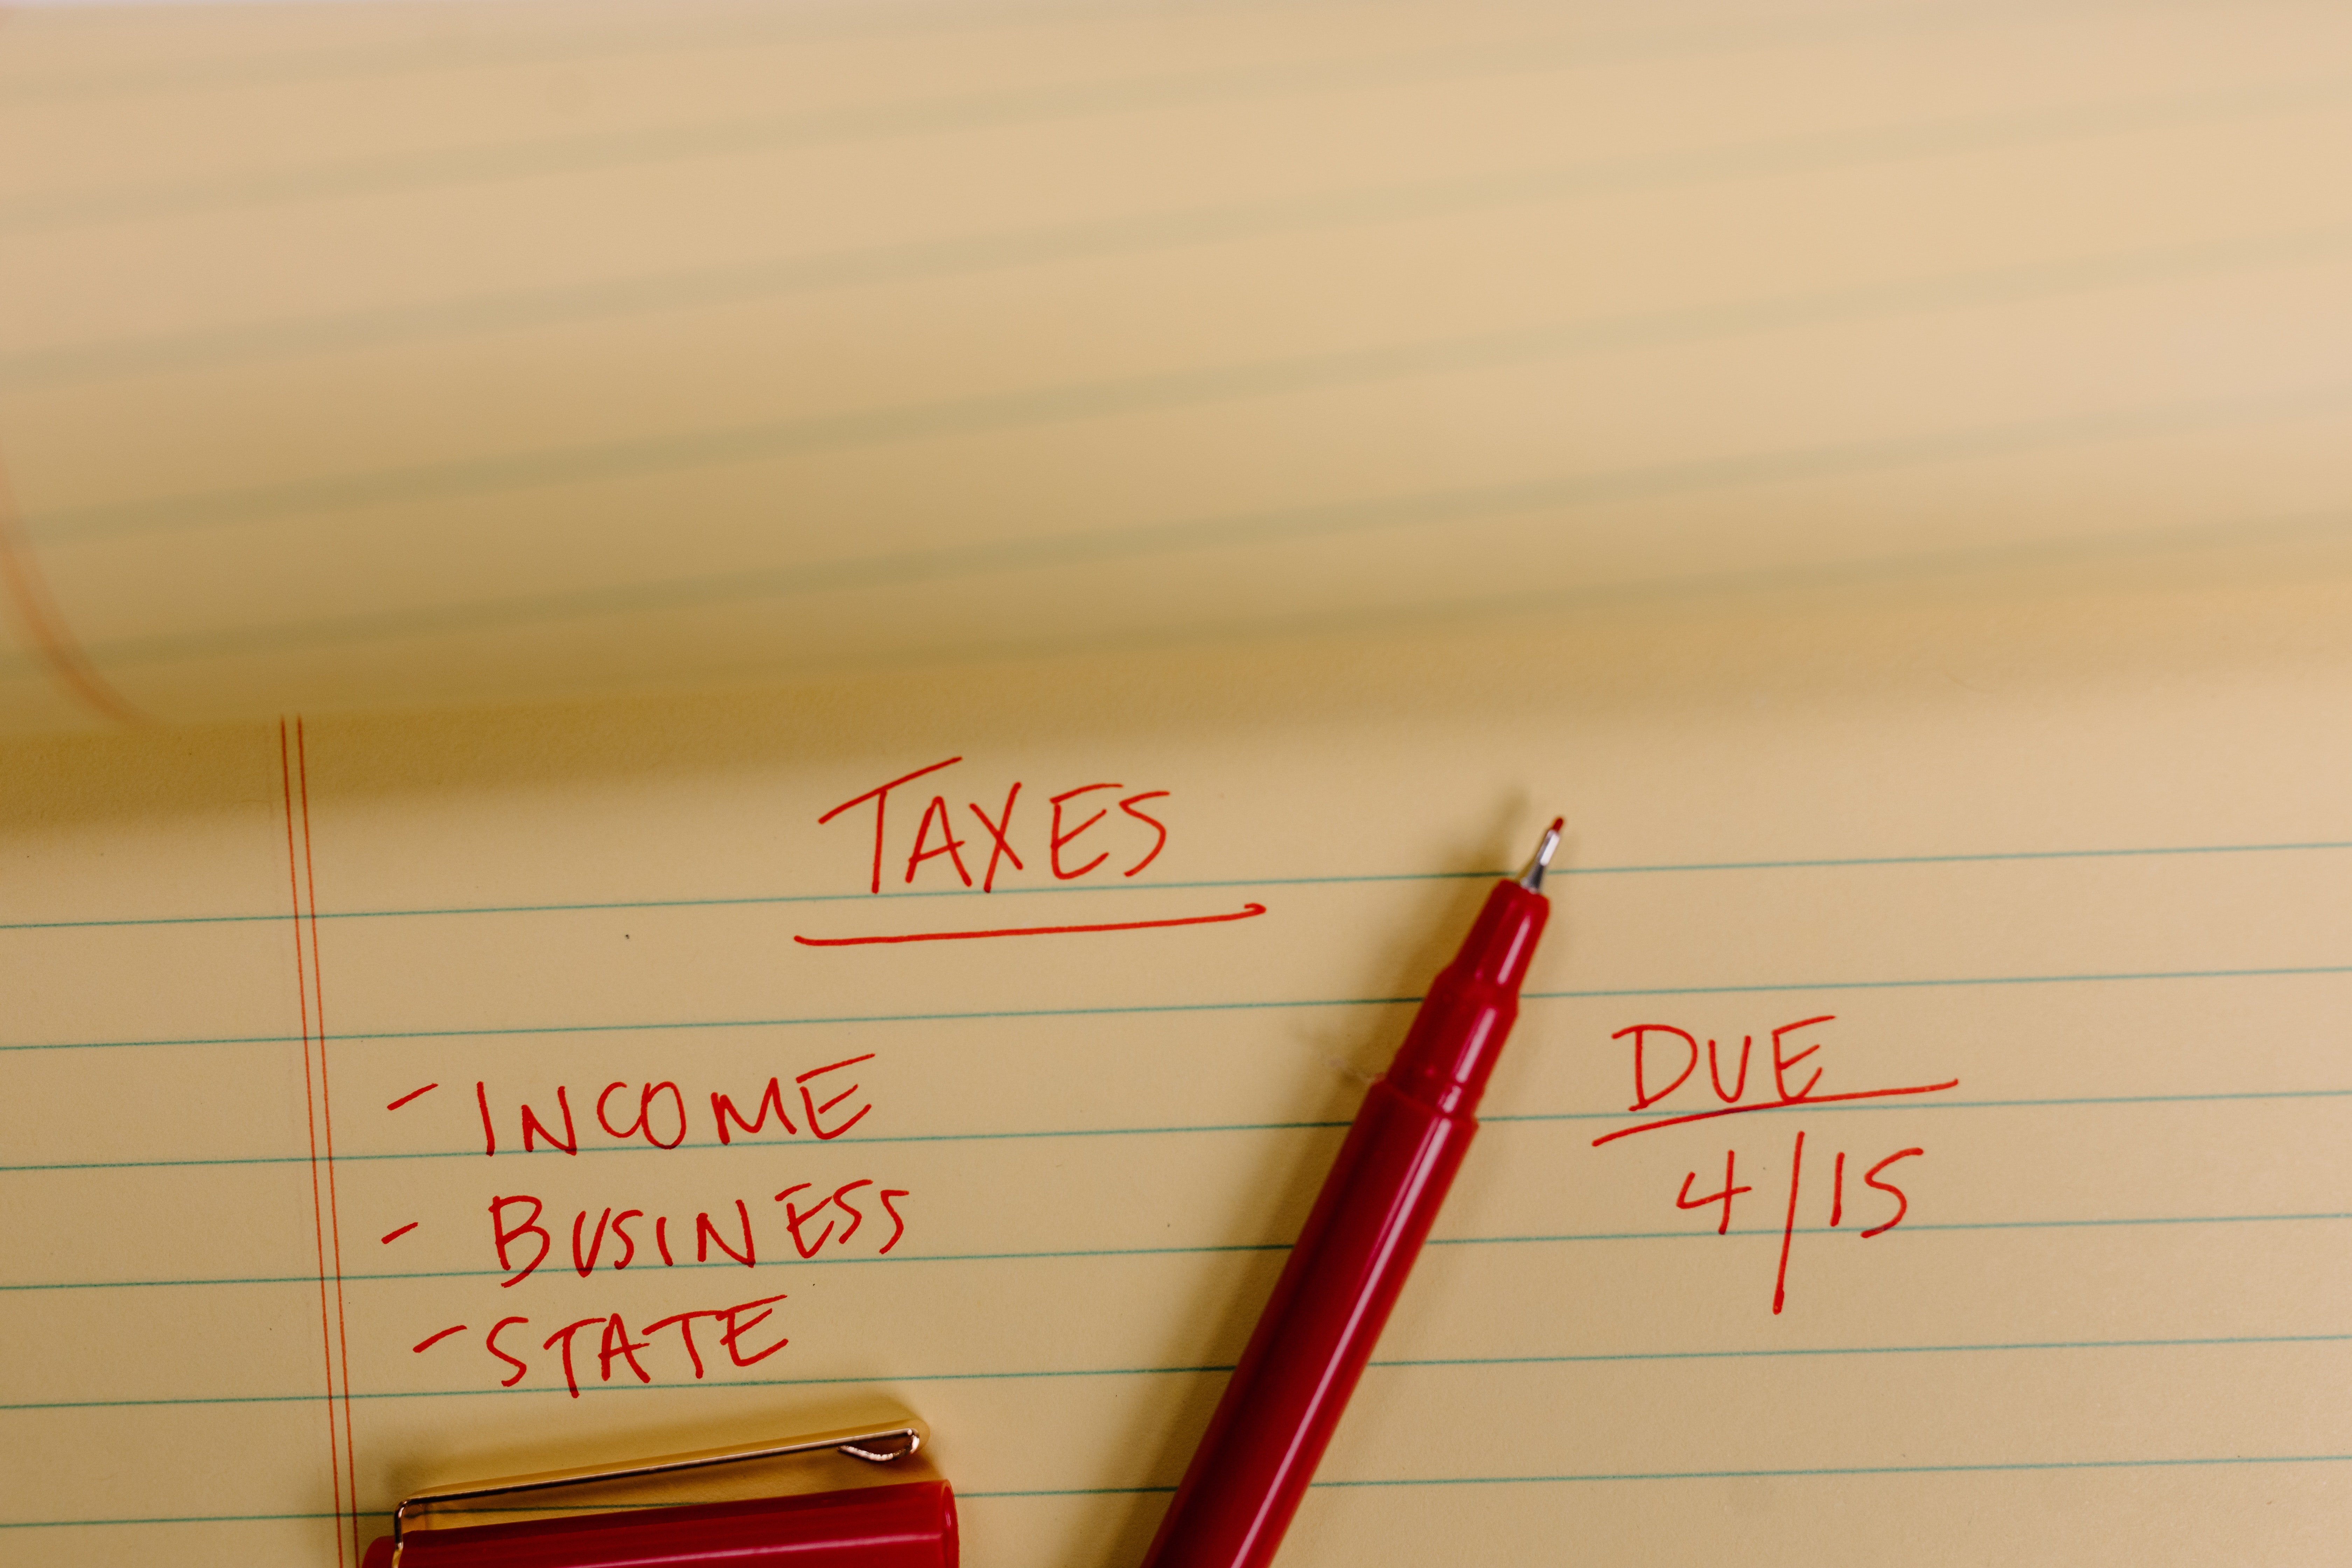 TAXES
- INCOME
- BUSINESS
- STATE
DUE
4/15